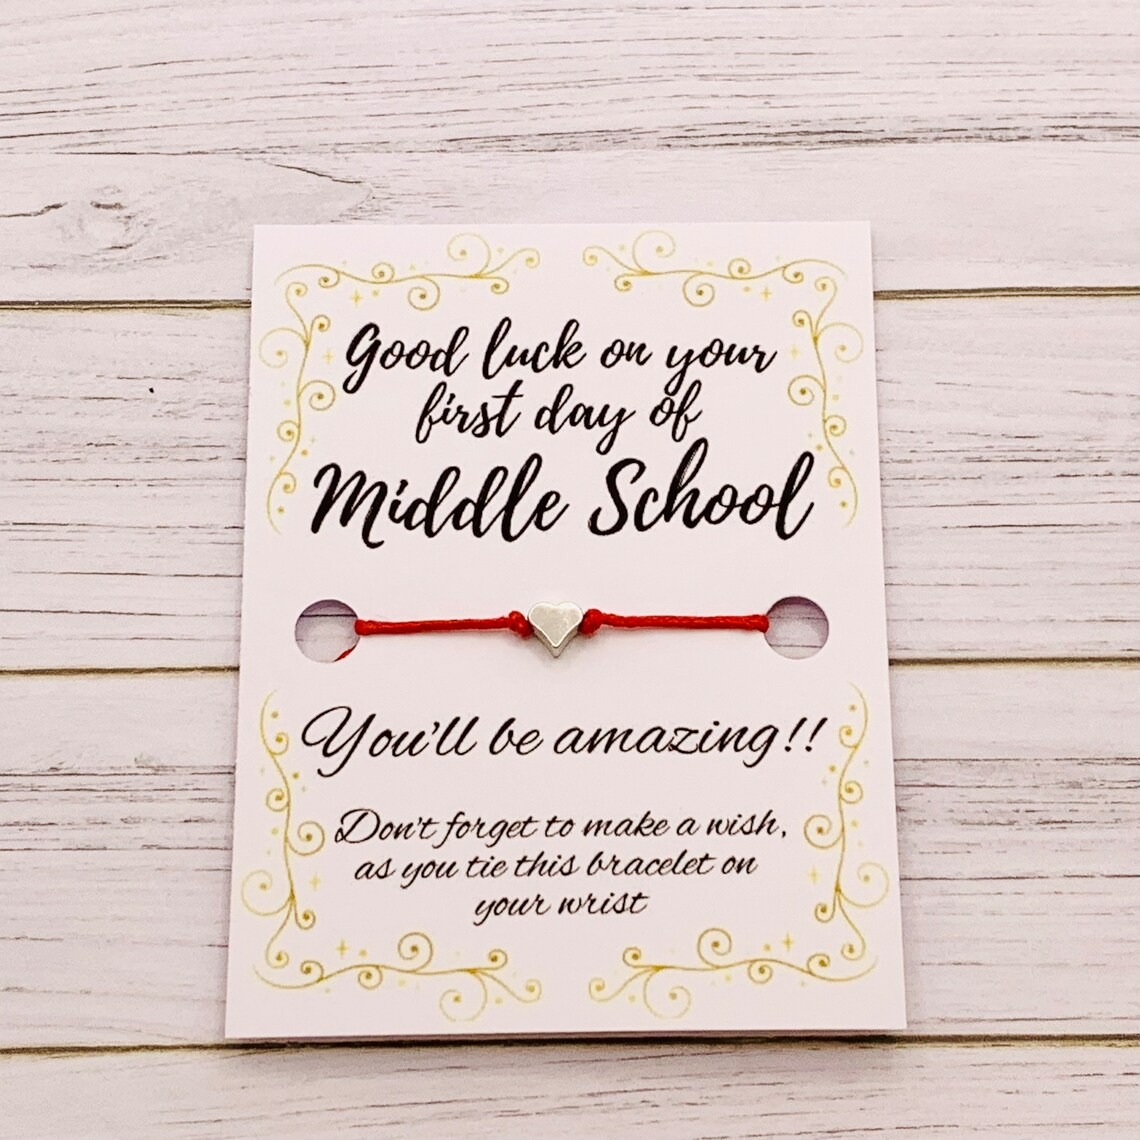 Good luck on your
first day of
Middle School
You'll be amazing!!
Don't forget to make a wish,
as you tie this bracelet on
your wrist